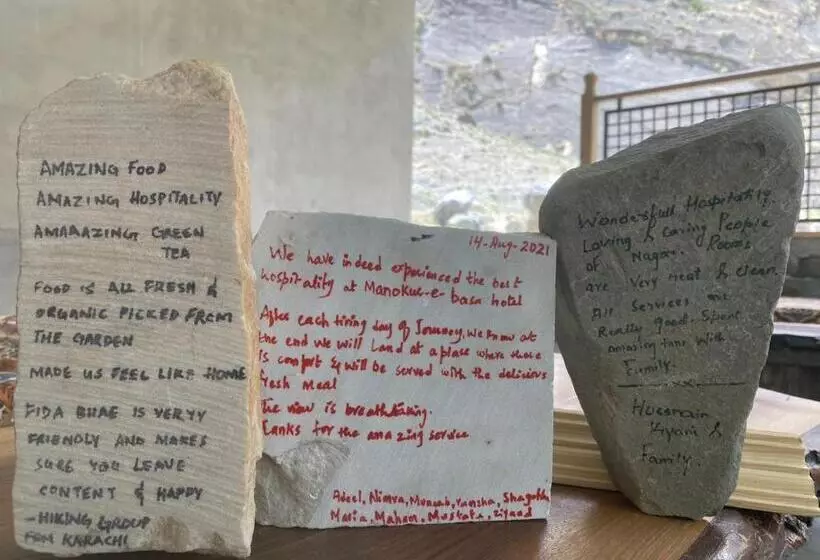 AMAZING FOOD
AMAZING HOSPITALITY
AMAAAZING GREEN
TEA
FOOD IS ALL FRESH &
ORGANIC PICKED FROM
THE GARDEN
MADE US FEEL LIKE HOME
FIDA BHAE IS VERYY
FRIENDLY AND MAKES
SURE YOU LEAVE
CONTENT & HAPPY
-HIKING GROUP
FROM KARACHI
14-Aug-2021
We have indeed experienced the best
hospitality at Manokur-e-basa hotel
After each tiring day of Journey, we know at
the end we will Land at a place where there
is comfort & will be served with the delicious
fresh meal
The view is breathtaking.
Tanks for the amazing service
Adeel, Nimra, Muneeb, Yamsha, Shagufta
Maria, Maham, Mustafa, Ziyaad
Wonderfull Hospitality,
Loving & Caring People
of Nagar. Rooms
are Very Neat & clean.
All Services are
Really good. Spent
amazing time with
Family.
Hussnain
Kyani &
Family.